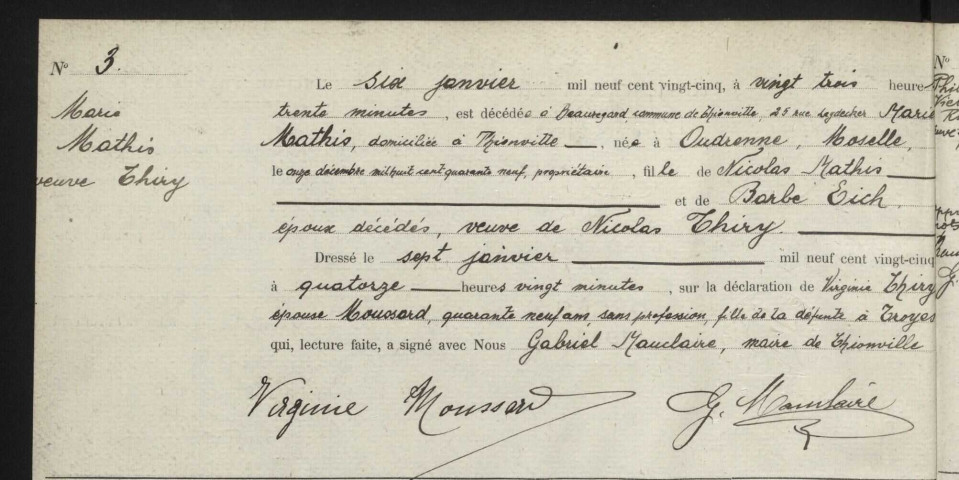 N° 3.
Marie
Mathis
veuve Thiry
Le six janvier mil neuf cent vingt-cinq, à vingt trois heures
trente minutes, est décédée à Beauregard commune de Thionville, 25 rue Marie
Mathis, domiciliée à Thionville, née à Oudrenne, Moselle,
le onze décembre mil huit cent quarante neuf, propriétaire, fille de Nicolas Mathis
et de Barbe Eich
époux décédés, veuve de Nicolas Thiry.
Dressé le sept janvier mil neuf cent vingt-cinq
à quatorze heures vingt minutes, sur la déclaration de Virginie Thiry
épouse Moussard, quarante neuf ans, sans profession, fille de la défunte à Troyes
qui, lecture faite, a signé avec Nous Gabriel Mauclaire, maire de Thionville
Virginie Moussard G. Mauclaire
N°